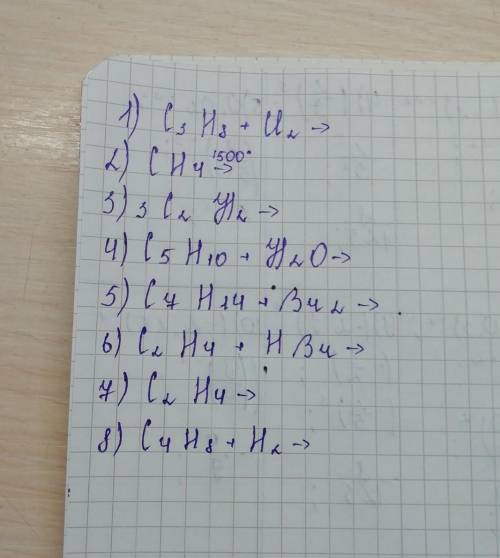 1) C₃H₈ + Cl₂ →
2) CH₄ 1500° →
3) 3C₂H₂ →
4) C₅H₁₀ + H₂O →
5) C₇H₁₄ + Br₂ →
6) C₂H₄ + HBr →
7) C₂H₄ →
8) C₄H₈ + H₂ →